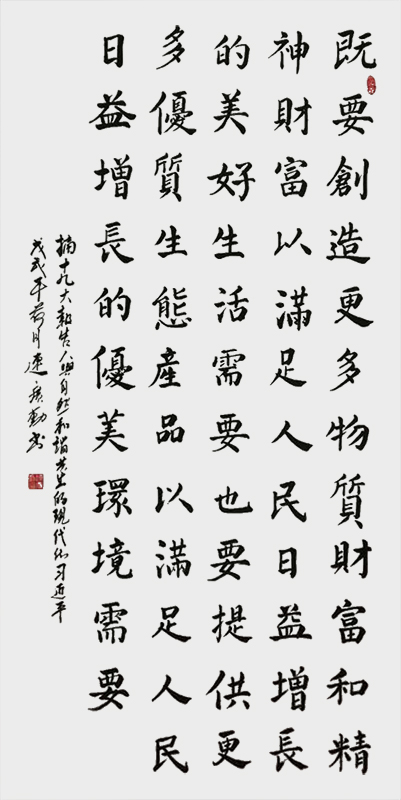 既要創造更多物質財富和精
神財富以滿足人民日益增長
的美好生活需要也要提供更
多優質生態產品以滿足人民
日益增長的優美環境需要
摘十九大報告人與自然和諧共生的現代化习近平
戊戌年荷月連廣勤书